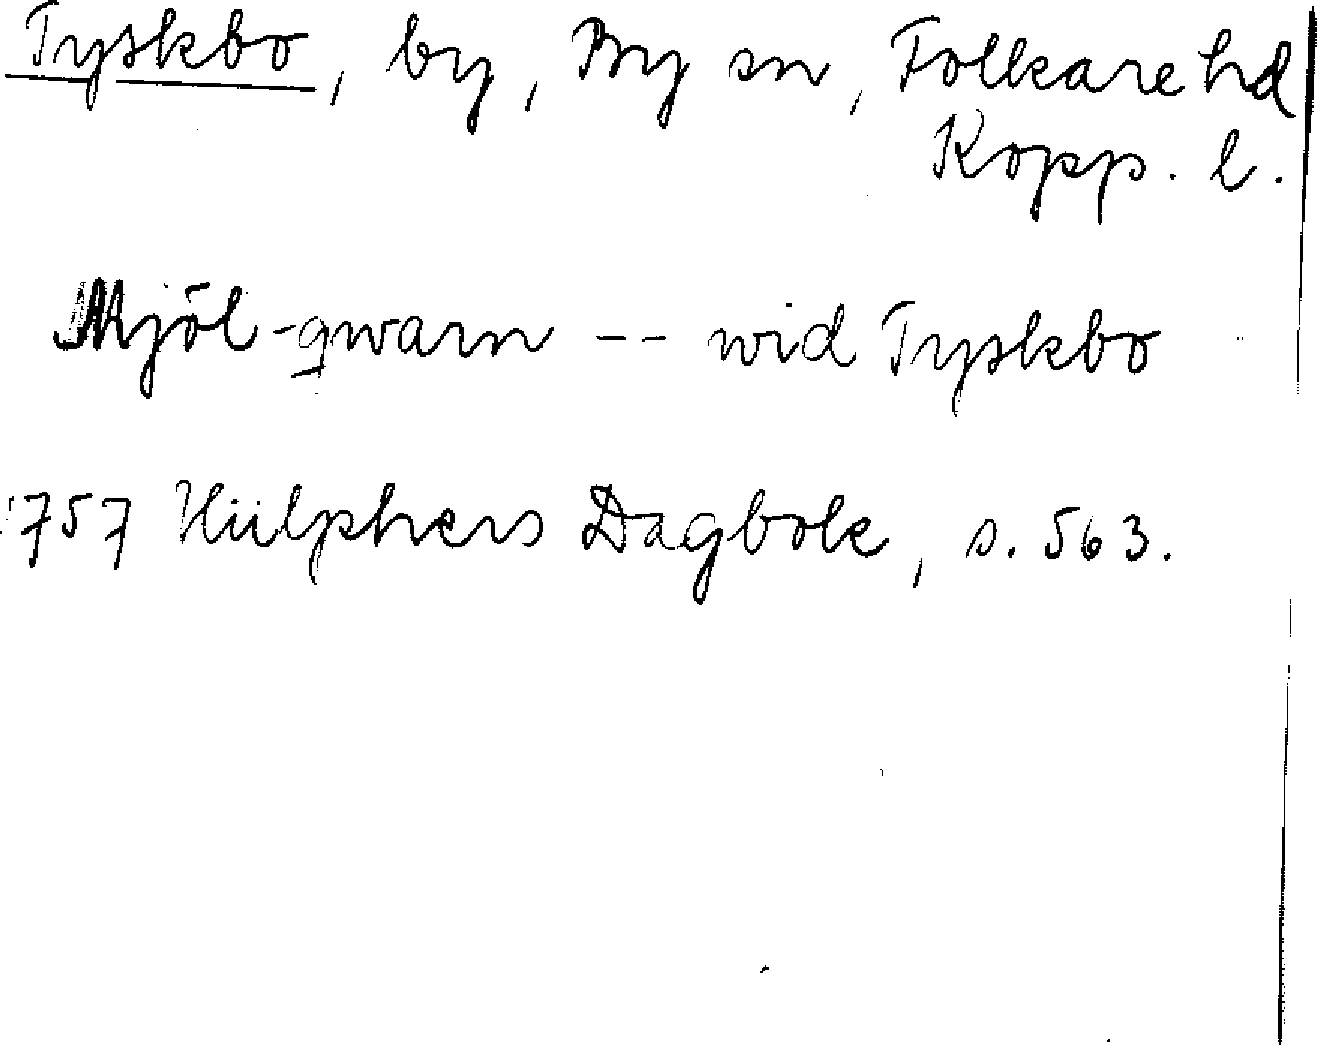 Tyskbo, by, By sn, Folkare hd
Kopp. l.
Mjöl-qwarn -- wid Tyskbo
1757 Hülphers Dagbok, s. 563.